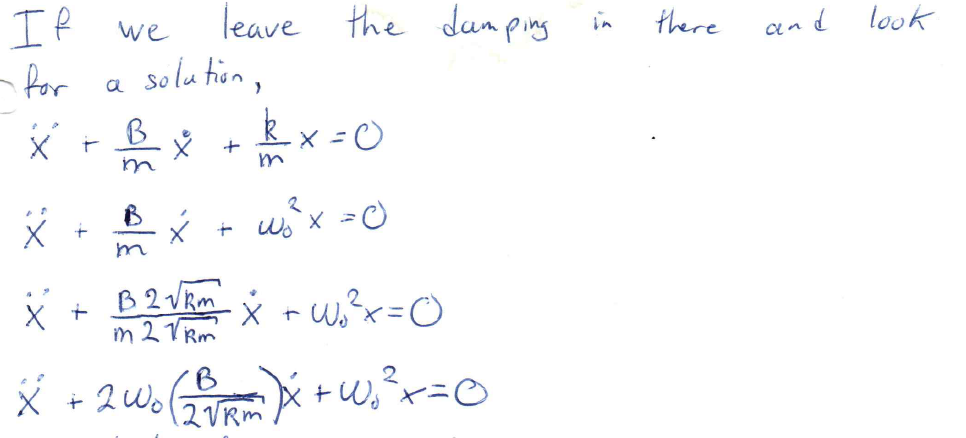 If we leave the damping in there and look
for a solution,
ẍ + B/m ẋ + k/m x = 0
ẍ + B/m ẋ + ω₀² x = 0
ẍ + B2√km/m2√km ẋ + ω₀²x = 0
ẍ + 2ω₀(B/2√km)ẋ + ω₀²x = 0